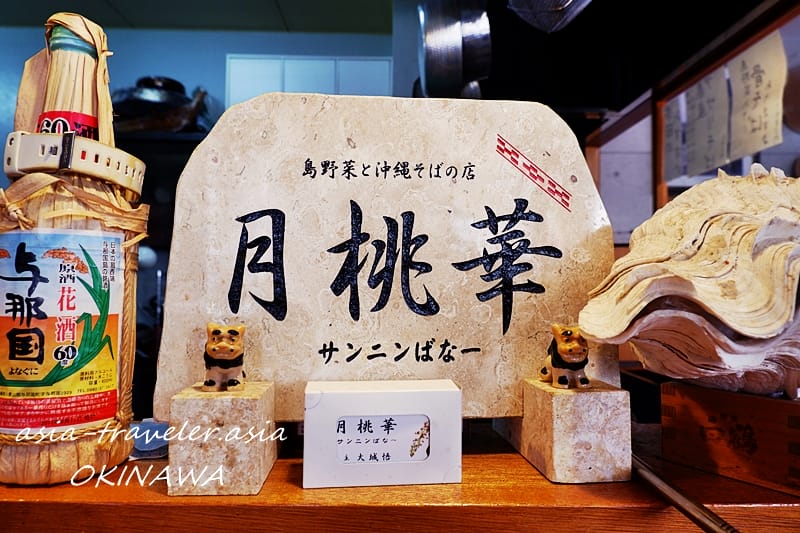 島野菜と沖縄そばの店
月桃華
サンニンばなー
月桃華
サンニンばなー
大城悟
60
与那国
よなぐに
原酒
花酒
60度
日本の最西端
asia-traveler.asia
OKINAWA